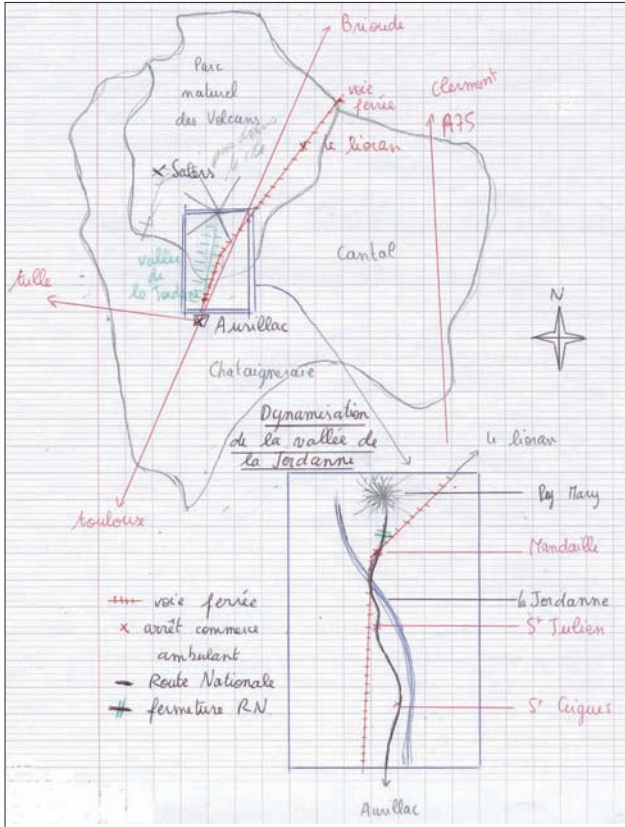 Brioude
Parc
naturel
des Volcans
Clermont
A75
voie
ferrée
le lioran
Salers
Cantal
vallée
de
la Jordanne
tulle
Aurillac
N
Chataigneraie
Dynamisation
de la vallée de
la Jordanne
le lioran
toulouse
Puy Mary
Mandaille
la Jordanne
St Julien
St Cirgues
voie ferrée
arrêt commerce
ambulant
Route Nationale
fermeture RN
Aurillac